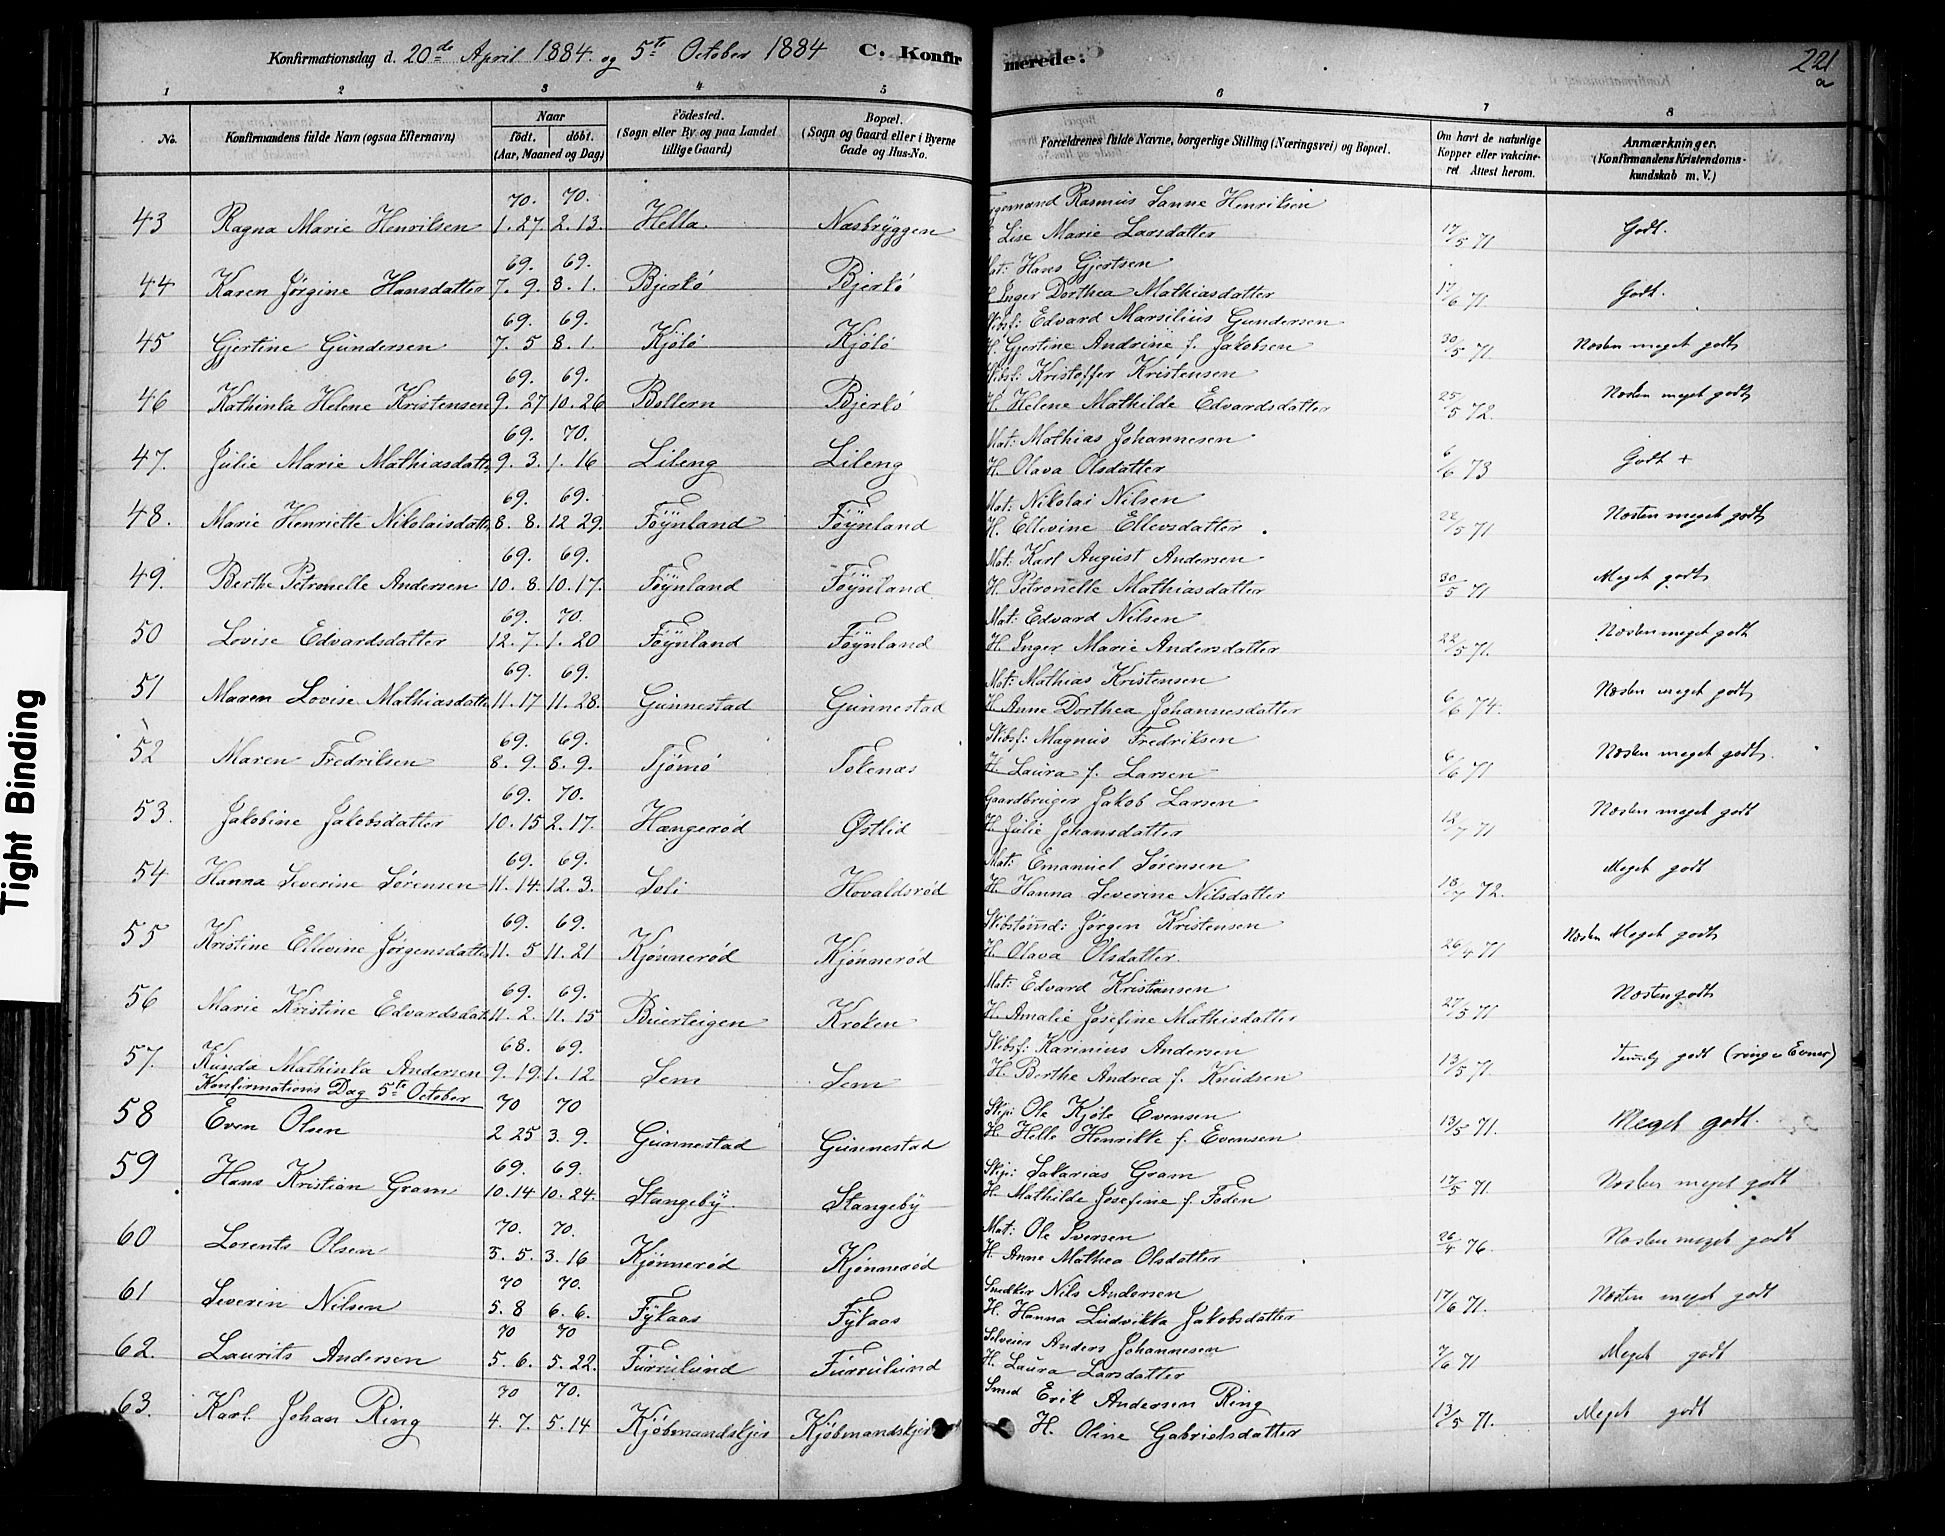 Konfirmationsdag d. 20de April 1884. og 5te October 1884 C. Konfirmerede: 221 a
1 2 3 4 5 6 7 8
No. Konfirmandens fulde Navn (ogsaa Efternavn) Naar født. døbt. (Aar, Maaned og Dag) Fødested. (Sogn eller By og paa Landet tillige Gaard) Bopæl. (Sogn og Gaard eller i Byerne Gade og Hus-No. Forældrenes fulde Navne, borgerlige Stilling (Næringsvei) og Bopæl. Om havt de naturlige Kopper eller vakcineret Attest herom. Anmærkninger. (Konfirmandens Kristendomskundskab m. V.)
70. 70. Rasmus Sanne Henriksen
43 Ragna Marie Henriksen 1. 27. 2. 13. Hella. Næsbryggen Lise Marie Larsdatter 17/5 71 Godt.
69. 69. Mat: Hans Gjertsen
44 Karen Jørgine Hansdatter 7. 9. 8. 1. Bjerkö Bjerkö H. Inger Dorthea Mathiasdatter 17/6 71 Godt.
69. 69. Skibsf: Edvard Marsilius Gundersen
45 Gjertine Gundersen 7. 5 8. 1. Kjölö Kjölö H. Gjertine Andrine f. Jakobsen 30/5 71 Næsten meget godt
69. 69. Skibsf: Kristoffer Kristensen
46 Kathinka Helene Kristensen 9. 27 10. 26 Bollern Bjerkö H. Helene Mathilde Edvardsdatter 25/5 72. Næsten meget godt
69. 70. Mat: Mathias Johannesen
47. Julie Marie Mathiasdatt 9. 3. 1. 16 Lileng Lileng H. Olava Olsdatter 6/6 73 Godt +
69. 69. Mat: Nikolai Nilsen
48. Marie Henriette Nikolaisdatt 8. 8. 12 29. Føynland Føynland H. Ellevine Ellevsdatter 22/5 71 Næsten meget godt
69. 69. Mat: Karl August Andersen
49. Berthe Petronelle Andersen 10. 8. 10. 17. Føynland Føynland. H. Petronelle Mathiasdatter 30/5 71 Meget godt
69. 70. Mat: Edvard Nilsen
50 Lovise Edvardsdatter 12. 7. 1. 20 Føynland Føynland H. Inger Marie Andersdatter 22/5 71. Næsten meget godt
69. 69. Mat: Mathias Kristensen
51 Maren Lovise Mathiasdatt 11. 17 11. 28. Gunnestad Gunnestad H. Anne Dorthea Johannesdatter 6/6 74. Næsten meget godt
69. 69. Skibsf: Magnus Fredriksen
52 Maren Fredriksen 8. 9. 8. 9. Tjömö Tokenæs H. Laura f. Larsen 6/6 71 Næsten meget godt.
69. 70. Gaardbruger Jakob Larsen
53. Jakobine Jakobsdatter 10. 15 2. 17. Hængerød Østlid H. Julie Johansdatter 12/7 71 Næsten meget godt
69. 69. Mat: Emanuel Sørensen
54 Hanna Severine Sørensen 11. 14. 12. 3. Soli Hovaldsrød H. Hanna Severine Nilsdatter 18/7 72. Meget godt
69. 69. Skibstømd: Jørgen Kristensen
55 Kristine Ellevine Jørgensdatter 11. 5 11. 21 Kjønnerød Kjønnerød H. Olava Olsdatter. 26/4 71 Næsten Meget godt
69. 69. Mat: Edvard Kristiansen
56 Marie Kristine Edvardsdat 11. 2. 11. 15 Buerteigen Kroken H. Amalie Josefine Mathisdatter 27/5 71 Næsten godt
68. 69. Skibsf: Karinius Andersen
57. Kunda Mathinka Andersen 9. 19 1. 12. Sem Sem H. Berthe Andrea f. Knudsen 13/5 71. godt (ringe Evner)
Konfirmations Dag 5te October
70 70 Skip: Ole Kjøle Evensen
58 Even Olsen 2 25 3. 9. Gunnestad Gunnestad H. Helle Henrikke f. Evensen 13/5 71. Meget godt.
69. 69. Skip: Sakarias Gram
59 Hans Kristian Gram 10. 14 10. 24. Stangeby. Stangeby H. Mathilde Josefine f. Foden 17/5 71. Næsten meget godt
70. 70. Mat: Ole Iversen
60 Lorents Olsen 3. 5. 3. 16 Kjønnerød Kjønnerød H. Anne Mathea Olsdatter 26/4 76. Næsten meget godt
70 70. Snedker Nils Andersen
61 Severin Nilsen 5. 8 6. 6. Fykaas Fykaas H. Hanna Ludvikka Jakobsdatter 17/6 71. Næsten meget godt
70 70 Selveier Anders Johannesen
62. Laurits Andersen 5. 6. 5. 22. Furrulund Furrulund H. Laura Larsdatter 7/6 71 Meget godt
70 70. Smed Erik Andersen Ring
63. Karl Johan Ring 4. 7. 5. 14 Kjøbmandskjær Kjøbmandskjær H. Oline Gabrielsdatter 13/5 71. Meget godt
Tight Binding